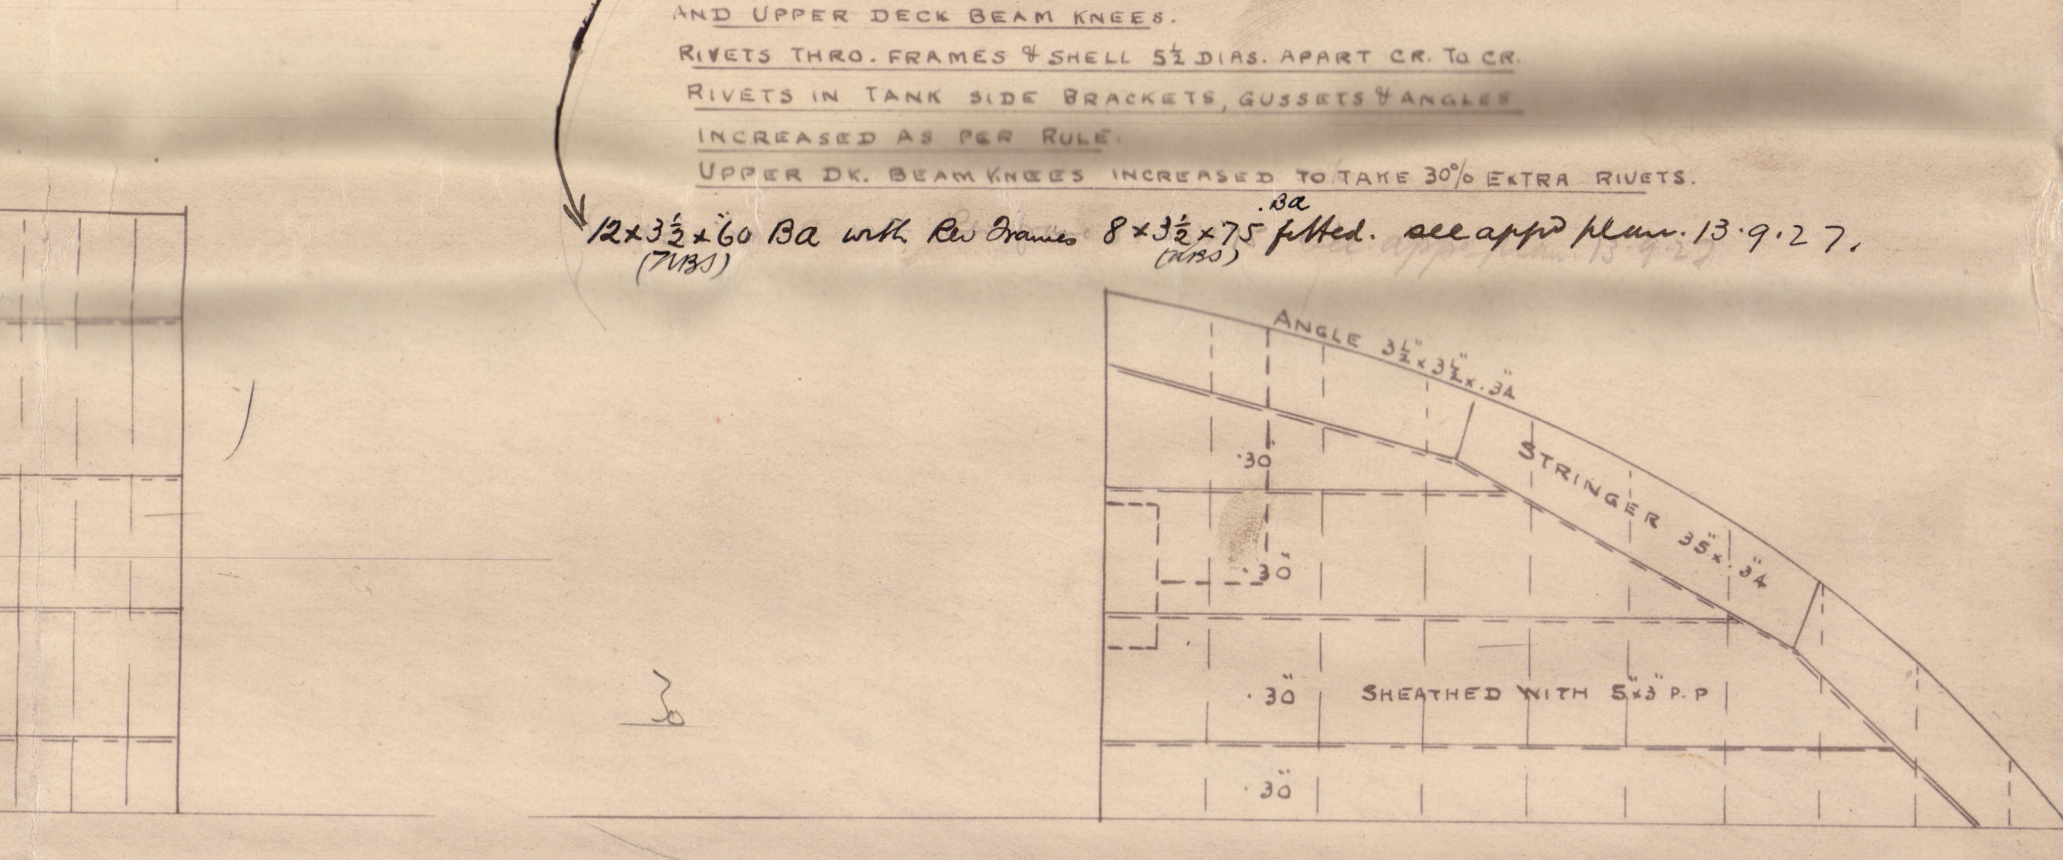 AND UPPER DECK BEAM KNEES.
RIVETS THRO. FRAMES & SHELL 5½ DIAS. APART CR. TO CR.
RIVETS IN TANK SIDE BRACKETS, GUSSETS & ANGLES
INCREASED AS PER RULE.
UPPER DK. BEAM KNEES INCREASED TO TAKE 30% EXTRA RIVETS.
12 x 3½ x .60 Ba with Rev Frames 8 x 3½ x .75 Ba fitted. see appd plan. 13.9.27.
(NBS) (NBS)
ANGLE 3½" x 3½" x .34"
STRINGER 35" x .34"
.30"
.30"
.30" SHEATHED WITH 5" x 3" P.P
.30"
30